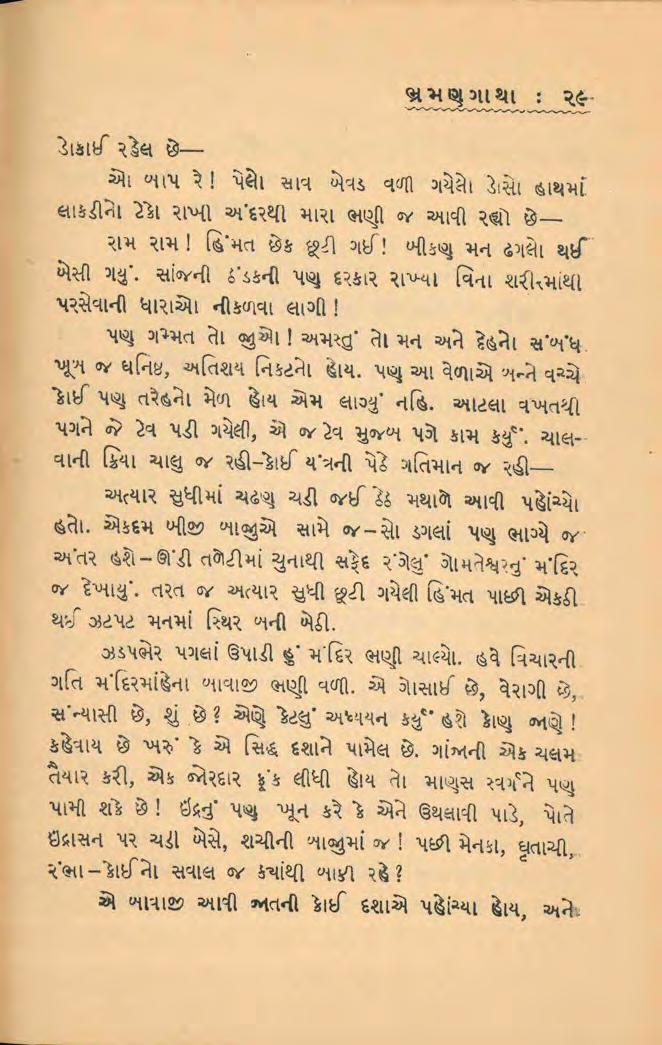 ભ્રમણગાથા : ૨૯
ડોકાઈ રહેલ છે—
ઓ બાપ રે! પેલો સાવ બેવડ વળી ગયેલો ડોસો હાથમાં
લાકડીનો ટેકો રાખી અંદરથી મારા ભણી જ આવી રહ્યો છે—
રામ રામ! હિંમત છેક છૂટી ગઈ! બીકણુ મન ઢગલો થઈ
બેસી ગયું. સાંજની ઠંડકની પણ દરકાર રાખ્યા વિના શરીરમાંથી
પરસેવાની ધારાઓ નીકળવા લાગી!
પણ ગમ્મત તો જુઓ! અમસ્તું તો મન અને દેહનો સંબંધ
ખૂબ જ ઘનિષ્ઠ, અતિશય નિકટનો હોય. પણ આ વેળાએ બન્ને વચ્ચે
કોઈ પણ તરેહનો મેળ હોય એમ લાગ્યું નહિ. આટલા વખતથી
પગને જે ટેવ પડી ગયેલી, એ જ ટેવ મુજબ પગે કામ કર્યું. ચાલ-
વાની ક્રિયા ચાલુ જ રહી–કોઈ યંત્રની પેઠે ગતિમાન જ રહી—
અત્યાર સુધીમાં ચઢણ ચડી જઈ ઠેઠ મથાળે આવી પહોંચ્યો
હતો. એકદમ બીજી બાજુએ સામે જ–સો ડગલાં પણ ભાગ્યે જ
અંતર હશે–ઊંડી તળેટીમાં ચુનાથી સફેદ રંગેલું ગોમતેશ્વરનું મંદિર
જ દેખાયું. તરત જ અત્યાર સુધી છૂટી ગયેલી હિંમત પાછી એકઠી
થઈ ઝટપટ મનમાં સ્થિર બની બેઠી.
ઝડપભેર પગલાં ઉપાડી હું મંદિર ભણી ચાલ્યો. હવે વિચારની
ગતિ મંદિરમાંહેના બાવાજી ભણી વળી. એ ગોસાઈ છે, વેરાગી છે,
સંન્યાસી છે, શું છે? એણે કેટલું અધ્યયન કર્યું હશે કોણ જાણે!
કહેવાય છે ખરું કે એ સિદ્ધ દશાને પામેલ છે. ગાંજાની એક ચલમ
તૈયાર કરી, એક જોરદાર ફૂંક લીધી હોય તો માણસ સ્વર્ગને પણ
પામી શકે છે! ઇંદ્રનું પણ ખૂન કરે કે એને ઉથલાવી પાડે, પોતે
ઇંદ્રાસન પર ચડી બેસે, શચીની બાજુમાં જ! પછી મેનકા, ઘૃતાચી,
રંભા–કોઈનો સવાલ જ ક્યાંથી બાકી રહે?
એ બાવાજી આવી જાતની કોઈ દશાએ પહોંચ્યા હોય, અને